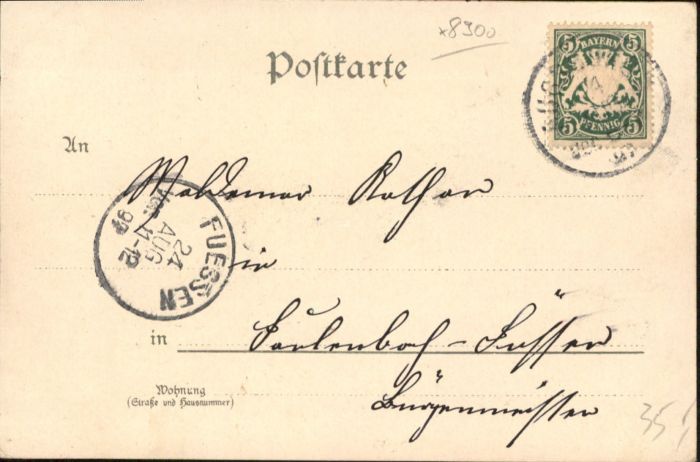 x8900
Postkarte
5 BAYERN 5
5 PFENNIG 5
An
Waldemar Rothar
in
FUESSEN
24
AUG
VOR. 11-12
99
in Faulenbach - Füssen
Wohnung
(Straße und Hausnummer)
Bürgermeister
35